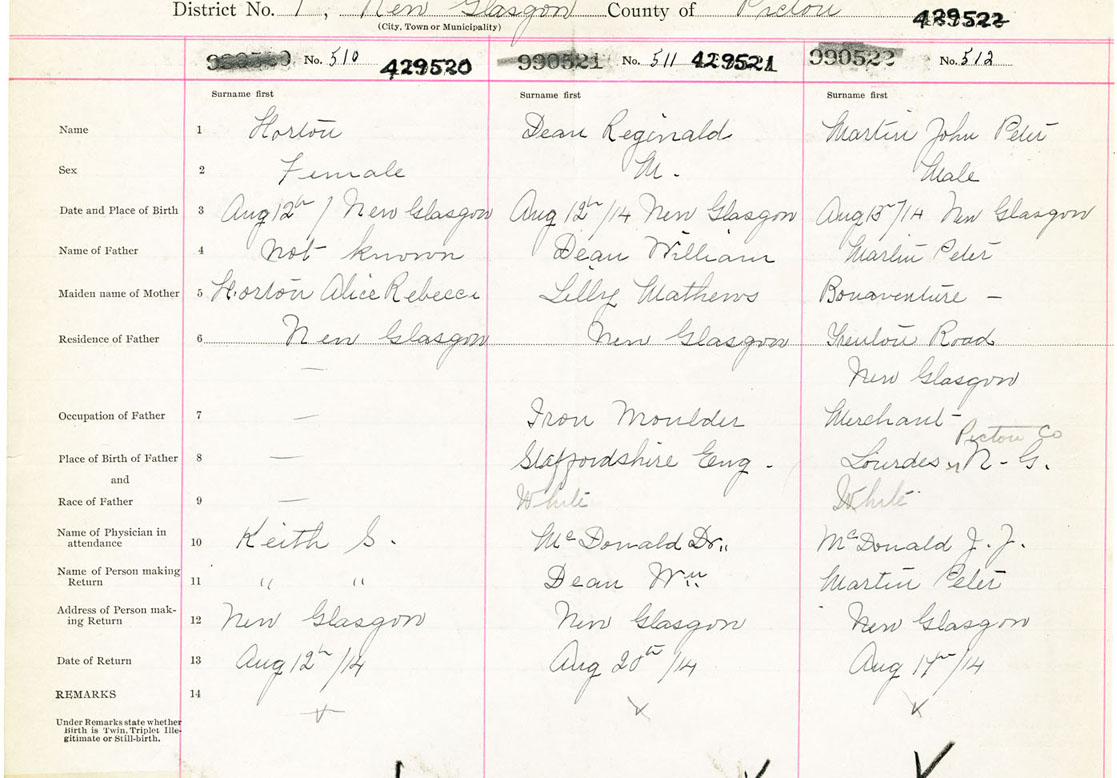 District No. 1, New Glasgow County of Pictou
(City, Town or Municipality)
429522
990520 No. 510 429520 990521 No. 511 429521 990522 No. 512
Surname first Surname first Surname first
Name 1 Horton Dean Reginald Martin John Peter
Sex 2 Female M. Male
Date and Place of Birth 3 Aug 12th / New Glasgow Aug 12th/14 New Glasgow Aug 15/14 New Glasgow
Name of Father 4 not known Dean William Martin Peter
Maiden name of Mother 5 Horton Alice Rebecca Lilly Mathews Bonaventure —
Residence of Father 6 New Glasgow New Glasgow Trenton Road
— New Glasgow
Occupation of Father 7 — Iron Moulder Merchant -
Pictou Co
Place of Birth of Father 8 — Staffordshire Eng. Lourdes N. G.
and
Race of Father 9 — White White
Name of Physician in
attendance 10 Keith S. McDonald Dr. McDonald J. J.
Name of Person making
Return 11 " " Dean Wm Martin Peter
Address of Person mak-
ing Return 12 New Glasgow New Glasgow New Glasgow
Date of Return 13 Aug 12th/14 Aug 20th/14 Aug 17th/14
REMARKS 14
Under Remarks state whether
Birth is Twin, Triplet Ille-
gitimate or Still-birth.